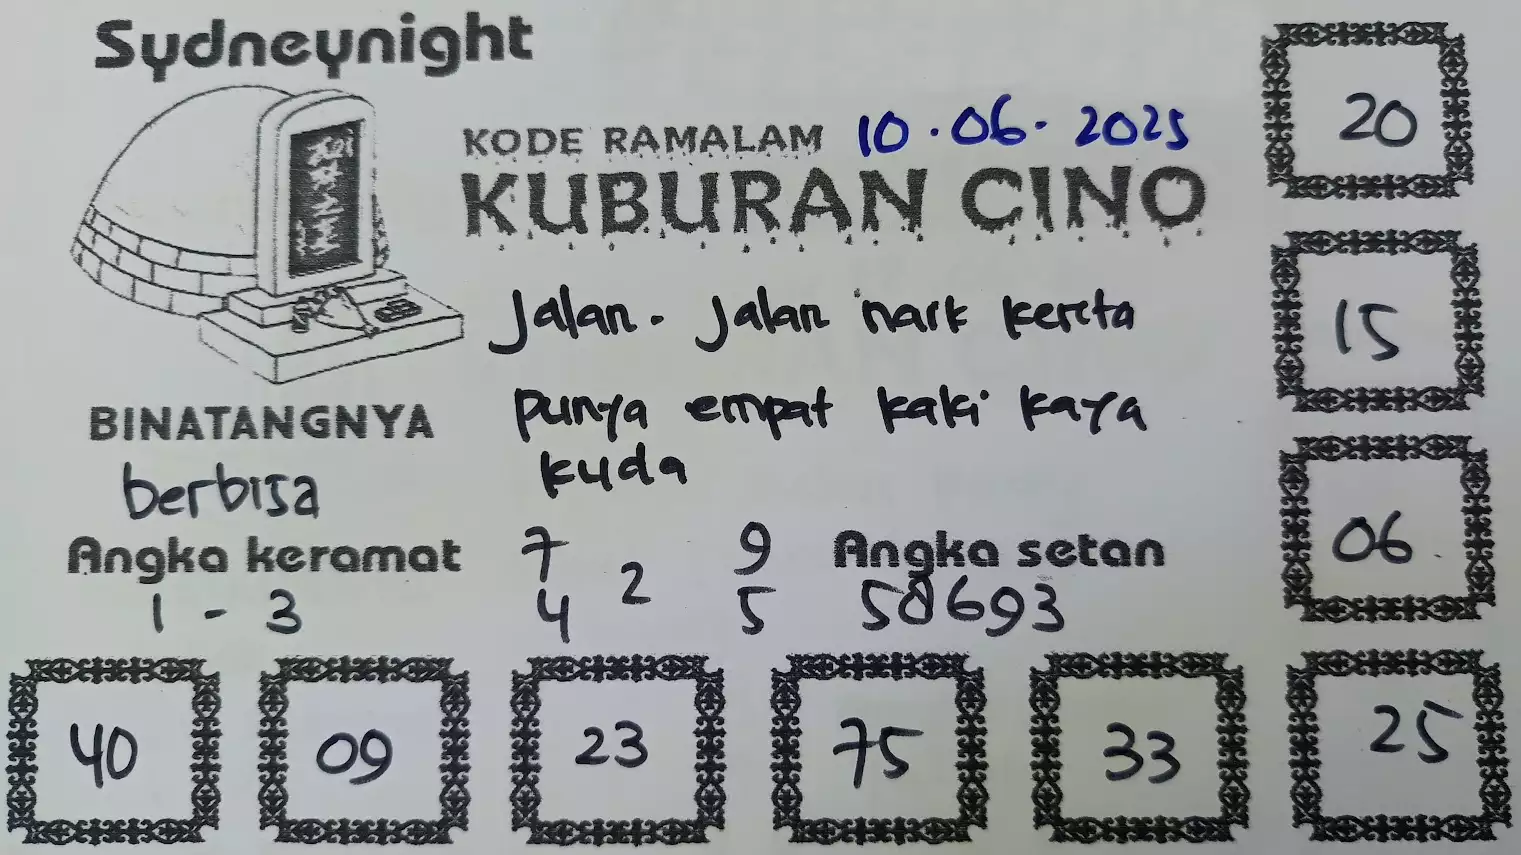 Sydneynight
KODE RAMALAM 10.06.2025
KUBURAN CINO
Jalan-Jalan naik kereta
punya empat kaki kaya
kuda
BINATANGNYA
berbisa
Angka keramat
1 - 3
7 9
2
4 5
Angka setan
58693
20
15
06
40 09 23 75 33 25